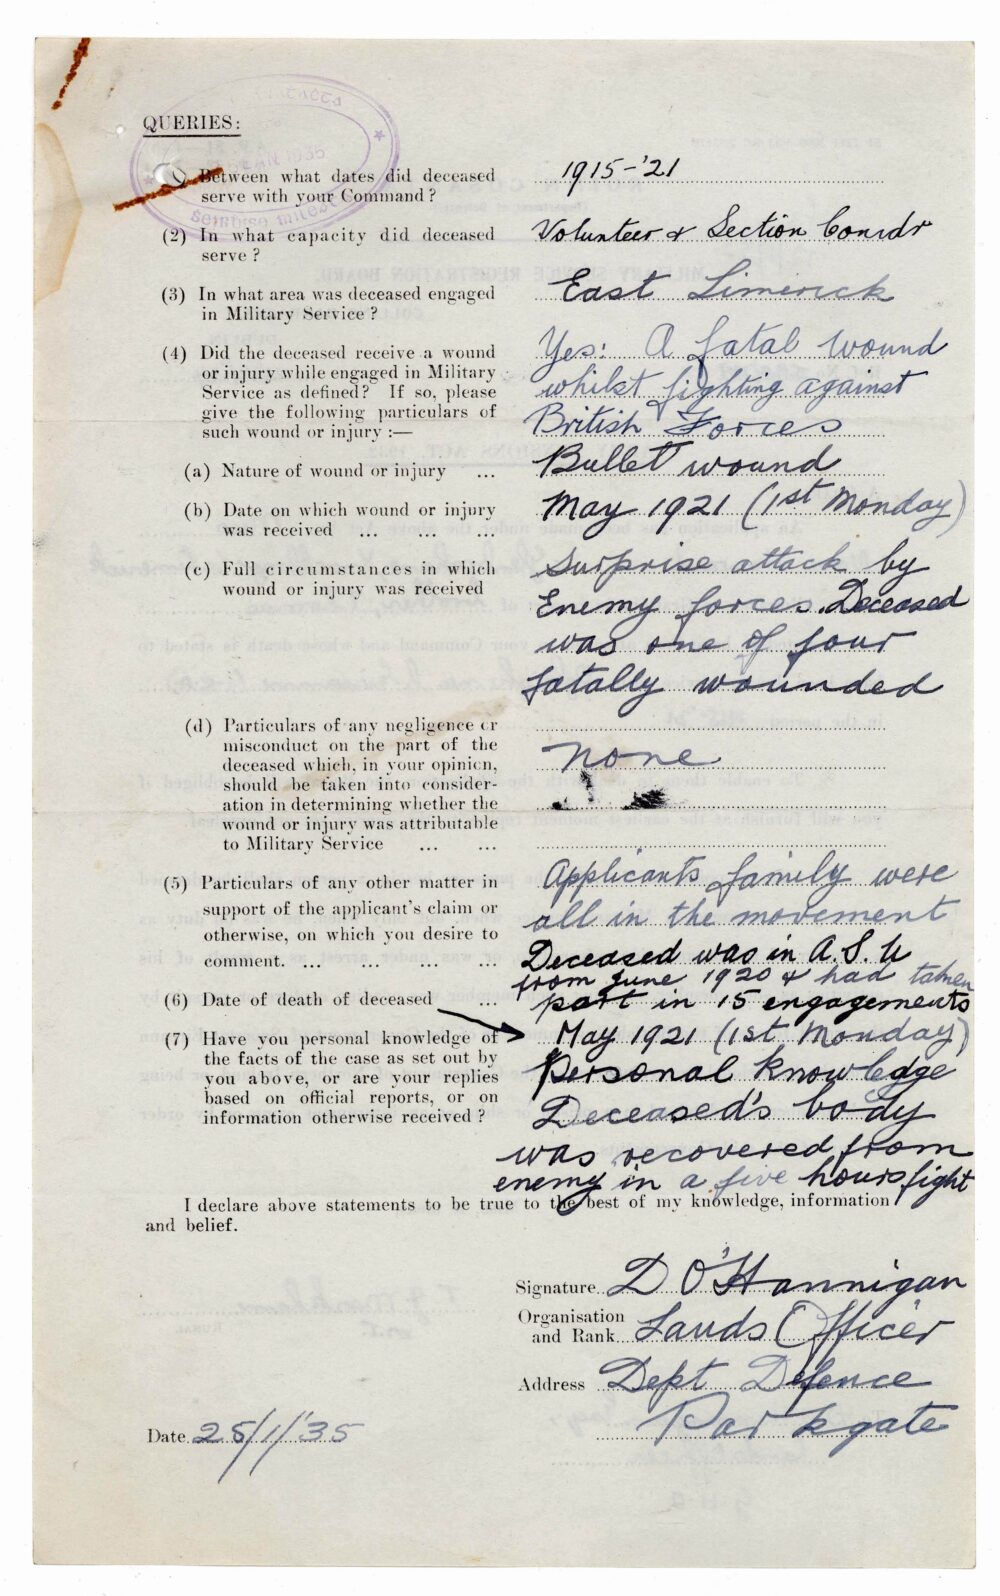 QUERIES:
Between what dates did deceased
serve with your Command?
1915-'21
(2) In what capacity did deceased
serve?
Volunteer & Section Comdr
(3) In what area was deceased engaged
in Military Service?
East Limerick
(4) Did the deceased receive a wound
or injury while engaged in Military
Service as defined? If so, please
give the following particulars of
such wound or injury:—
Yes: A fatal wound
whilst fighting against
British Forces
(a) Nature of wound or injury ...
Bullet wound
(b) Date on which wound or injury
was received ... ... ...
May 1921 (1st Monday)
(c) Full circumstances in which
wound or injury was received
Surprise attack by
Enemy forces. Deceased
was one of four
fatally wounded
(d) Particulars of any negligence or
misconduct on the part of the
deceased which, in your opinion,
should be taken into consider-
ation in determining whether the
wound or injury was attributable
to Military Service ... ...
none
(5) Particulars of any other matter in
support of the applicant's claim or
otherwise, on which you desire to
comment. ... ... ... ...
Applicants family were
all in the movement
Deceased was in A.S.U
from June 1920 & had taken
part in 15 engagements
(6) Date of death of deceased ...
May 1921 (1st Monday)
(7) Have you personal knowledge of
the facts of the case as set out by
you above, or are your replies
based on official reports, or on
information otherwise received?
Personal knowledge
Deceased's body
was recovered from
enemy in a five hours fight
I declare above statements to be true to the best of my knowledge, information
and belief.
Signature D O'Hannigan
Organisation
and Rank Lands Officer
Address Dept Defence
Parkgate
Date 25/1/'35